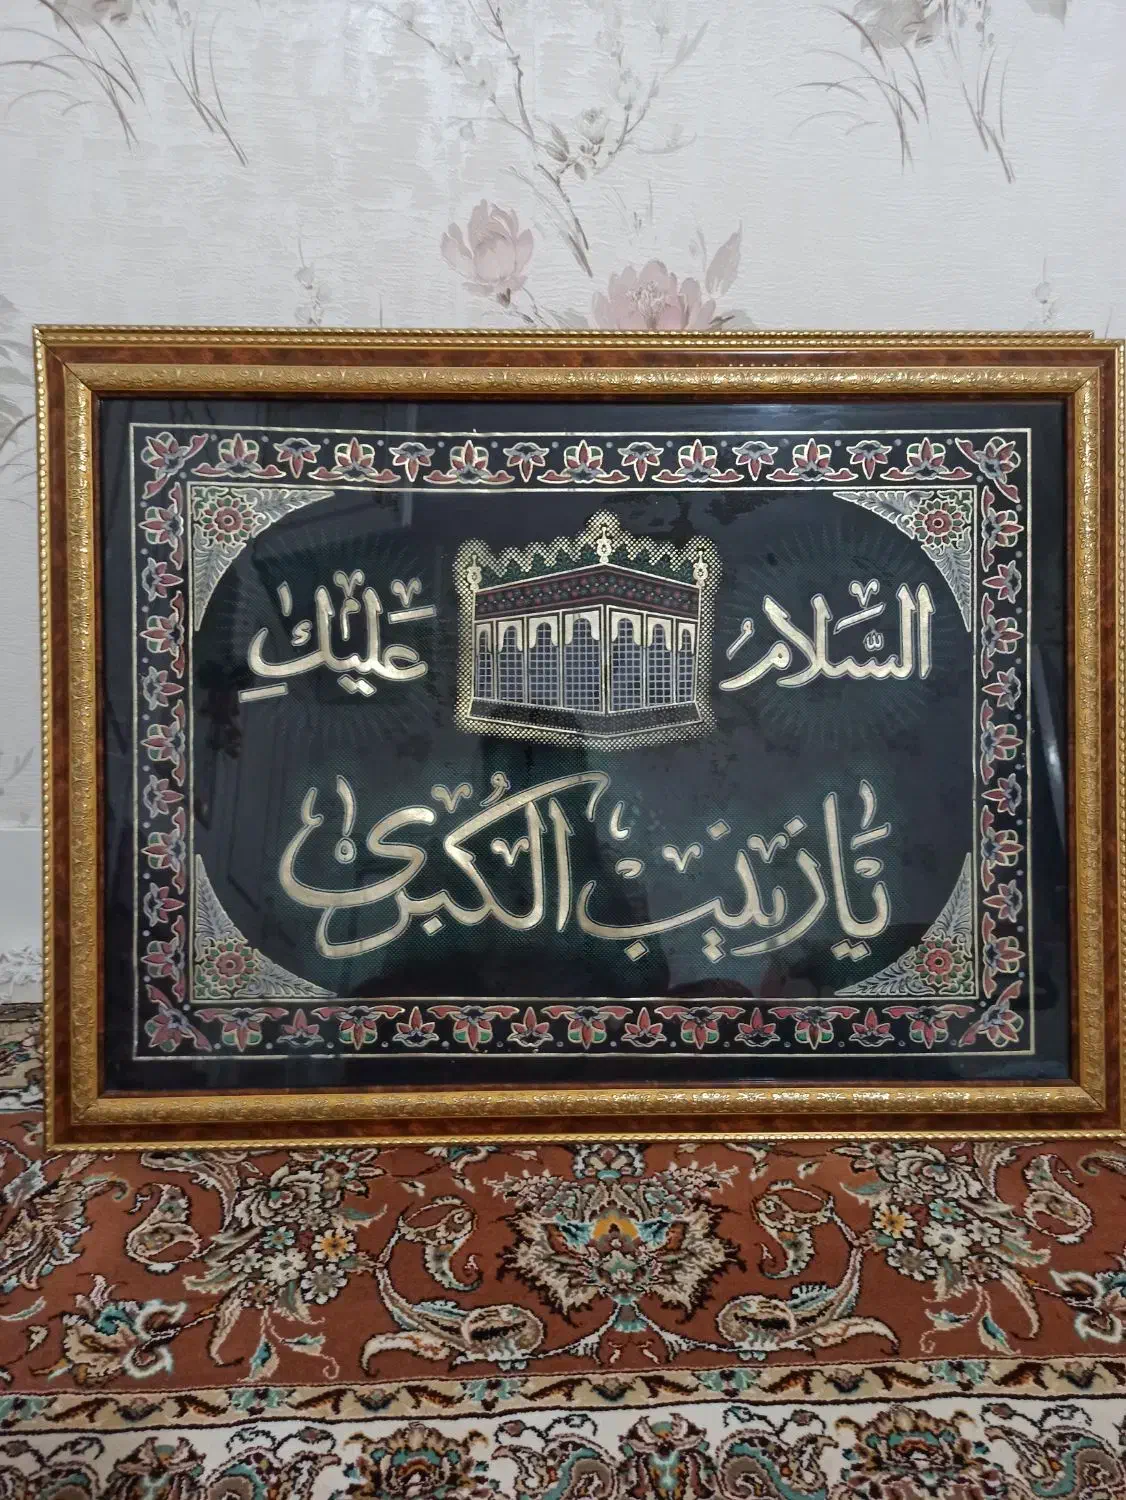 السَّلامُ عَلَيْكِ
يا زَيْنَبُ الْكُبْرىٰ